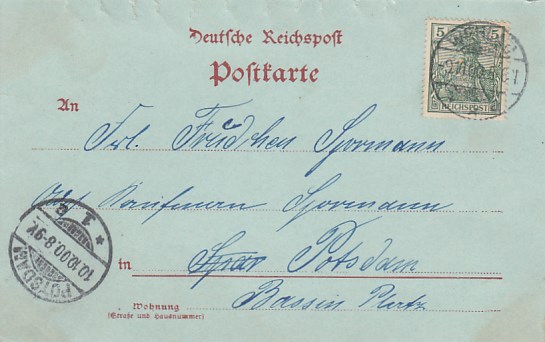 Deutsche Reichspost
Postkarte
5 5
REICHSPOST
An
Frl. Friedchen Spormann
Kaufmann Spormann
in Potsdam
Wohnung Bassin Platz
(Straße und Hausnummer)
POTSDAM
10.10.00.8-9V.
* 1 *